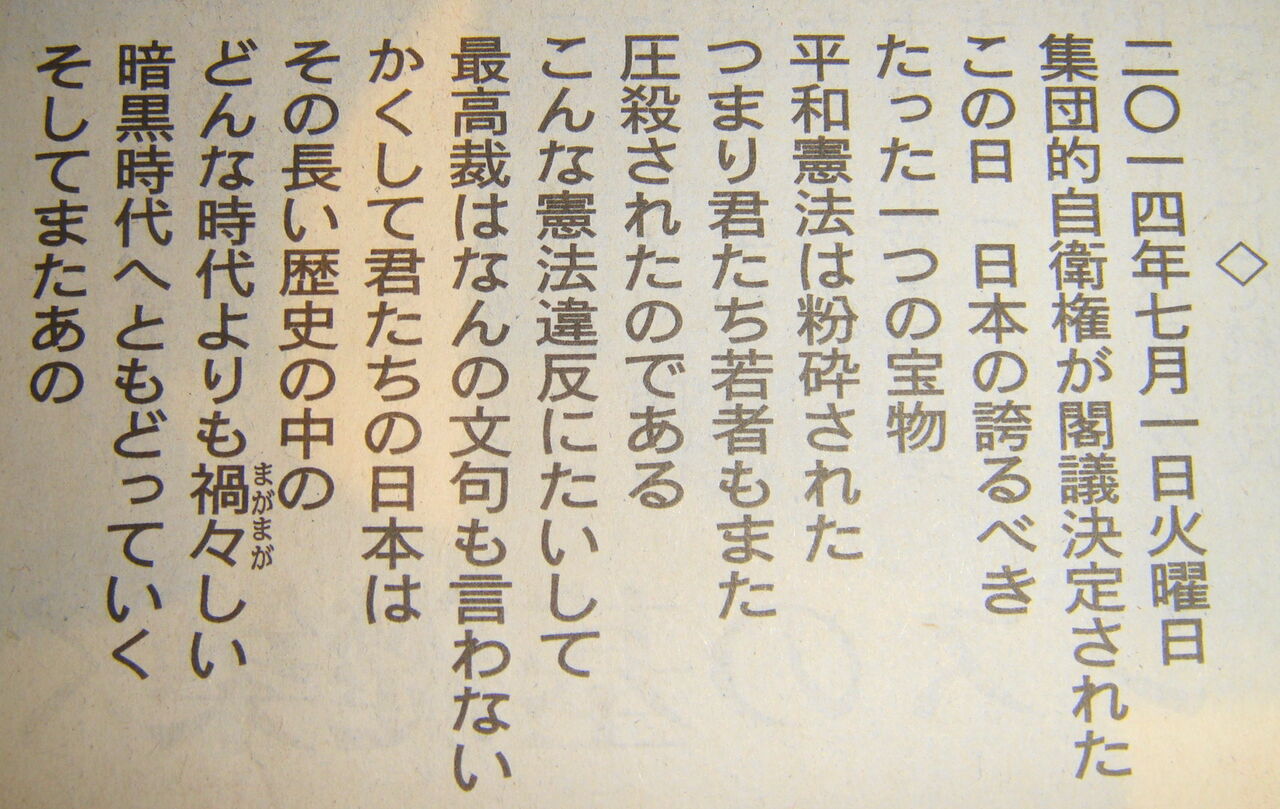 ◇
二〇一四年七月一日火曜日
集団的自衛権が閣議決定された
この日　日本の誇るべき
たった一つの宝物
平和憲法は粉砕された
つまり君たち若者もまた
圧殺されたのである
こんな憲法違反にたいして
最高裁はなんの文句も言わない
かくして君たちの日本は
その長い歴史の中の
どんな時代よりも禍々しい
まがまが
暗黒時代へともどっていく
そしてまたあの